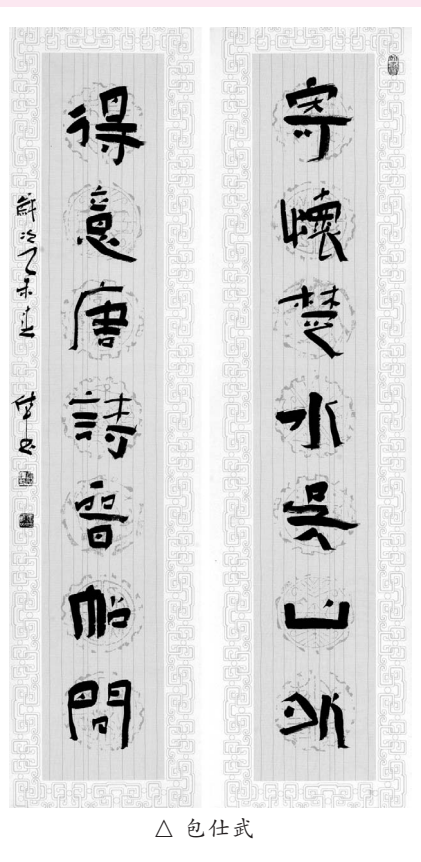 寄懷楚水吳山外
得意唐詩晉帖間
乙未春
△ 包仕武